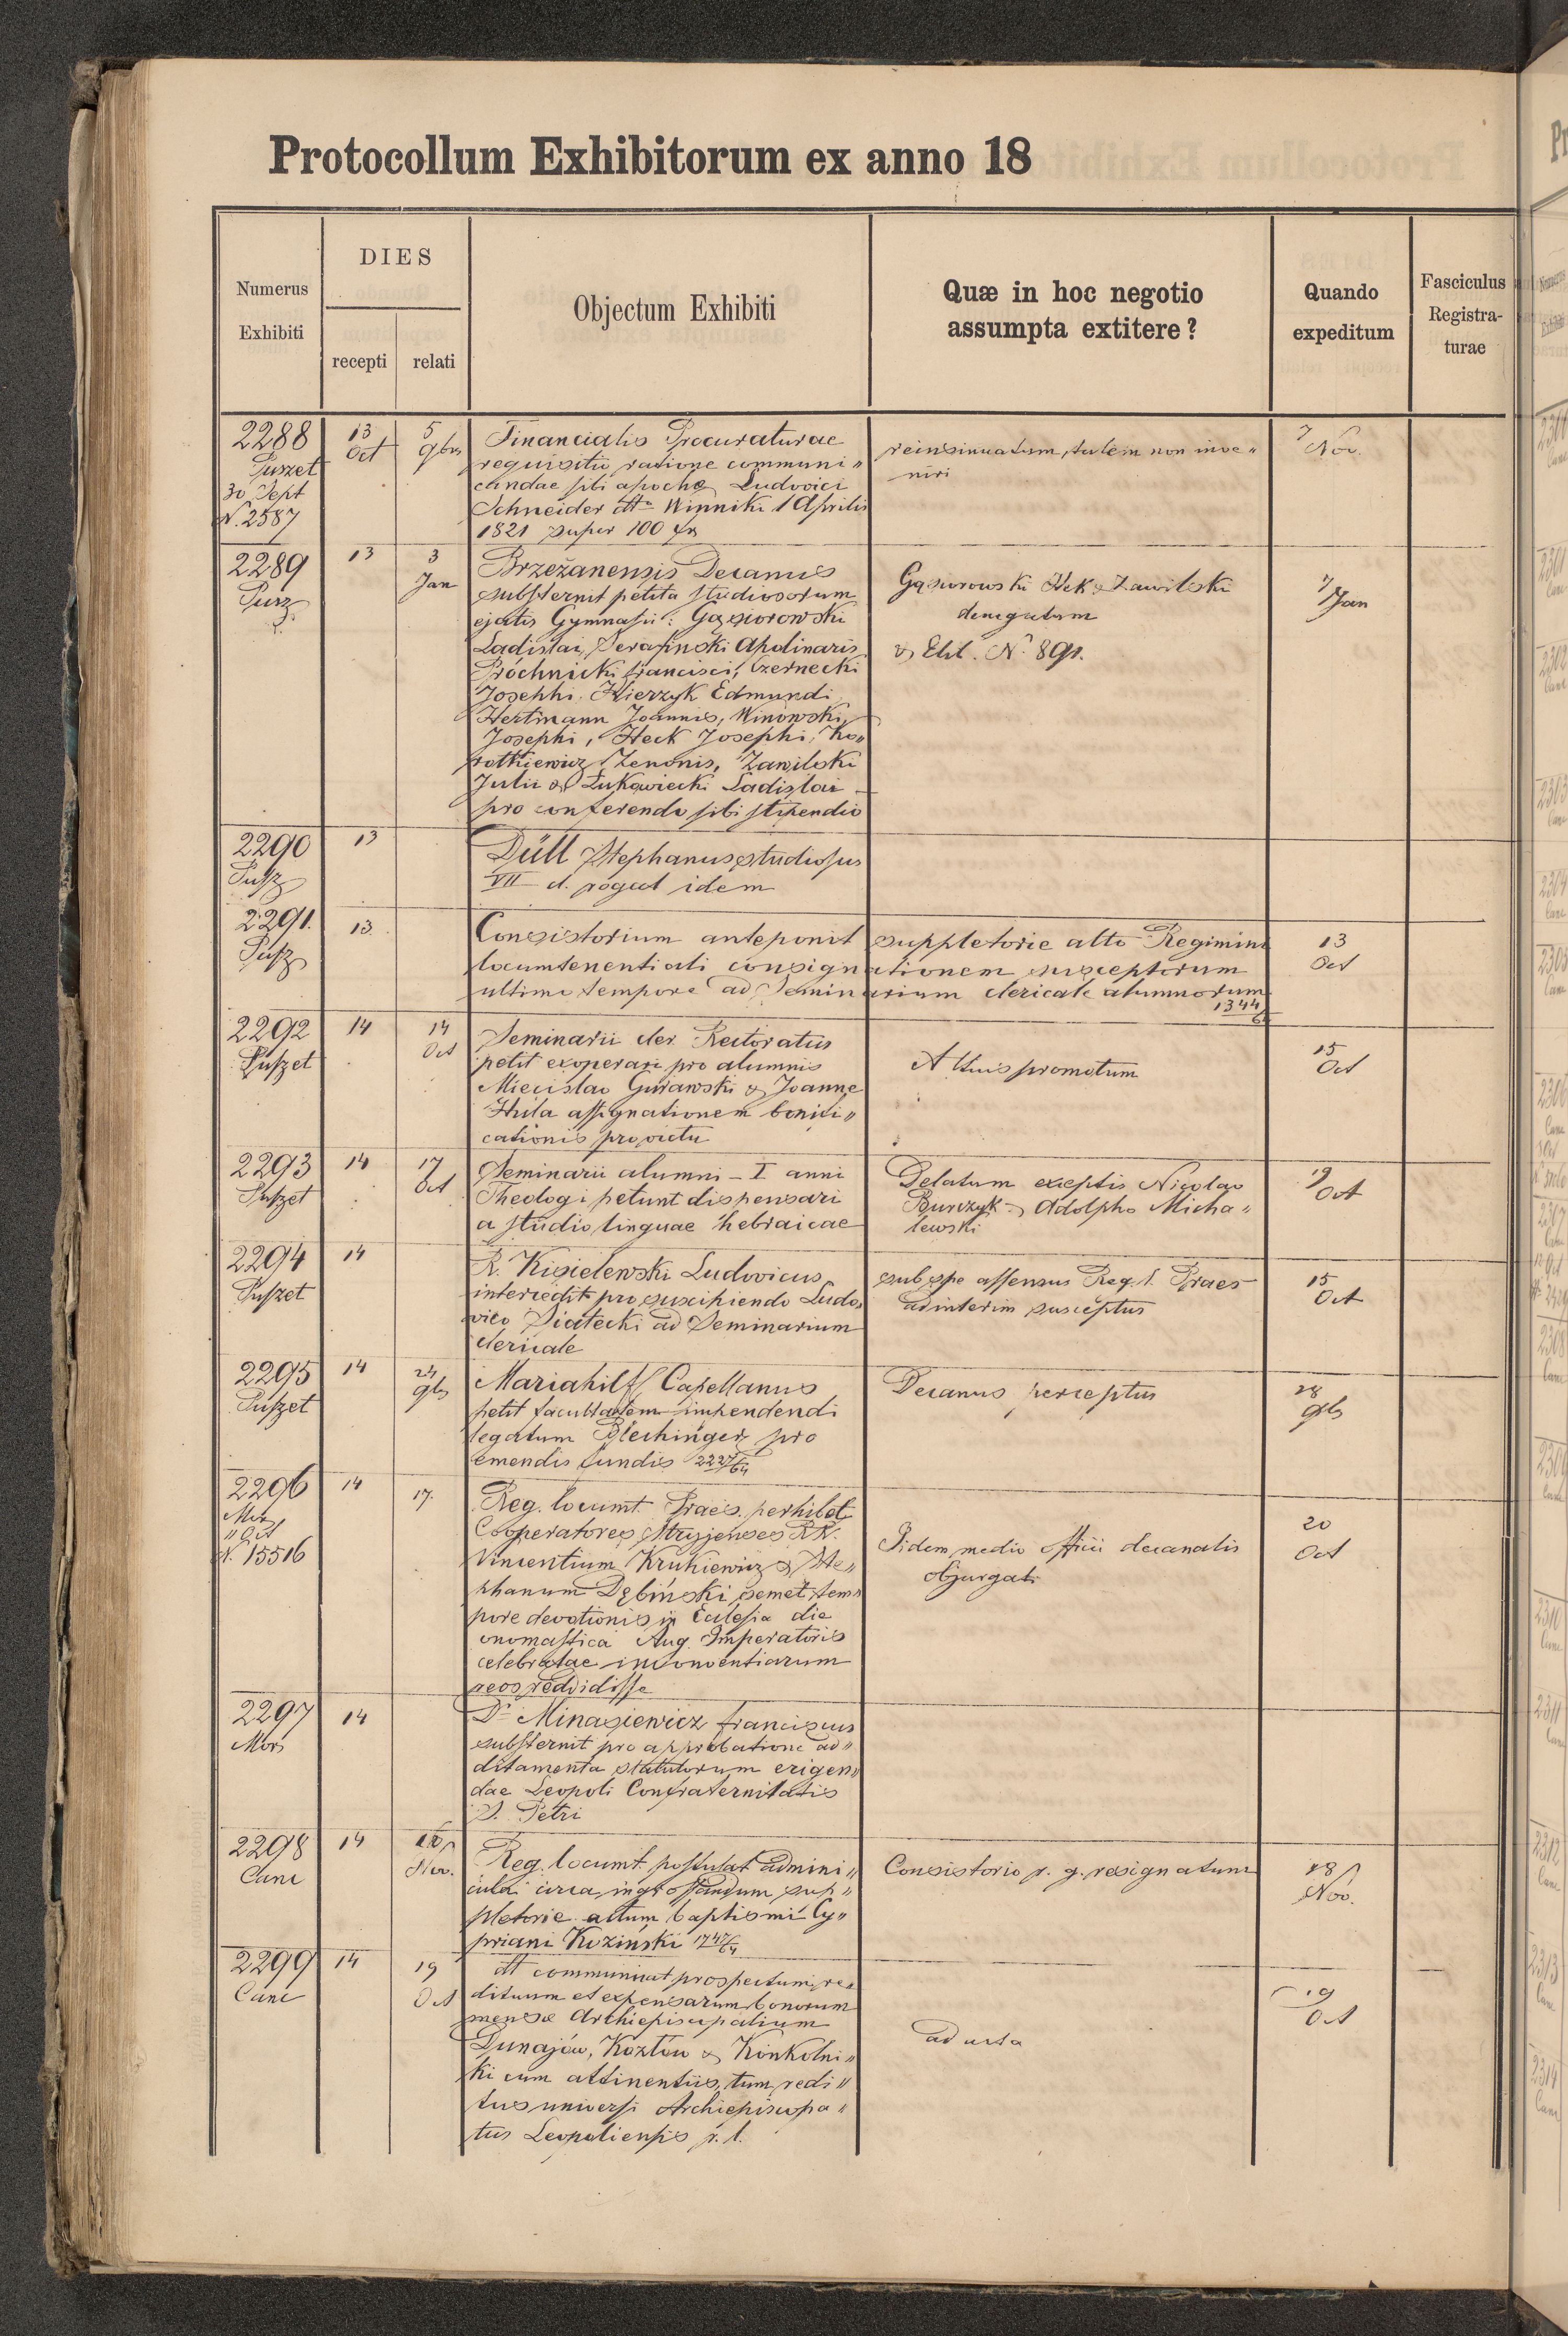 Protocollum Exhibitorum ex anno 18
Numerus Exhibiti
DIES
recepti
relati
Objectum Exhibiti
Quæ in hoc negotio
assumpta extitere?
Quando
expeditum
Fasciculus
Registra-
turae
2288
Puszet
30 Sept
N. 2587
13
Oct
5
9bris
Financialis Procuraturae
requisitio ratione communi„
candae sibi apocha Ludovici
Schneider Winniki 1 Aprilis
1821 super 100 fr
reinsinuatum, talem non inve„
niri
7
Nov.
2289
Pusz
13
3
Jan
Brzežanensis Decanus
substernit petita studiosorum
ejatis Gymnasii: Gąsiorowski
Ladislai, Serafinski Apolinaris
Próchnicki francisci, Czernecki
Josephi, Kierzyk Edmundi
Hertmann Joannis, Winowski
Josephi, Heck Josephi, Ko„
rotkiewicz Zenonis, Zawilski
Julii & Łukawiecki Ladislai
pro conferendo sibi stipendio
Gąsiorowski Hek & Zawilski
denegatum
N. 891.
7
Jan
2290
Pusz
13
Düll Stephanus studiosus
VII cl. rogat idem
2291.
Pusz
13.
Consistorium anteponit suppletorie alto Regimini
locumtenentiali consignationem susceptorum
ultimo tempore ad Seminarium clericale alumnorum
1344/64
13
Oct
2292
Puszet
14
14
Oct
Seminarii cler. Rectoratus
petit exoperari pro alumnis
Miecislao Gurawski & Joanne
Hula assignationem bonifi„
cationis pro victu
Altius promotum
15
Oct
2293
Puszet
14
17
Oct
Seminarii alumni - I anni
Theologi petunt dispensari
a studio linguae hebraicae
Delatum exceptis Nicolao
Burczyk & Adolpho Micha„
lewski
19
Oct
2294
Puszet
14
R. Kisielewski Ludovicus
intercedit pro suscipiendo Ludo„
vico Siatecki ad Seminarium
clericale
sub spe assensus Reg. l. Praes
ad interim susceptus
15
Oct
2295
Puszet
14
24
9bs
Mariahilf Capellanus
petit facultatem impendendi
legatum Blechinger pro
emendis fundis 2227/64
Decanus perceptus
28
9bs
2296
Mor
11 Oct
N. 15516
14
17.
Reg. locumt. Praes. perhibet
Cooperatores Stryjenses RR.
Vincentium Krukiewicz & Ste„
phanum Dębiński semet tem„
pore devotionis in Eclesia die
onomastica Aug. Imperatoris
celebratae inconventiarum
reos reddidisse
Iidem medio officii decanalis
objurgati
20
Oct
2297
Mor
14
Dr Minasiewicz franciscus
substernit pro approbatione ad„
ditamenta statutorum erigen„
dae Leopoli Confraternitatis
S. Petri
2298
Canc
14
Nov.
Reg. locumt. postulat admini„
cula circa ingrossandum sup„
pletorie actum baptismi Cy„
priani Koziński 1747/64
Consistorio r. g. resignatum
28
Nov.
2299
Canc
14
19
Oct
dtt communicat prospectum re„
dituum et expensarum bonorum
mensæ Archiepiscopalium
Dunajów, Kozłów & Konkolni„
ki cum attinentiis, tum redi„
tus universi Archiepiscopa„
tus Leopoliensis r. l.
ad acta
19
Oct